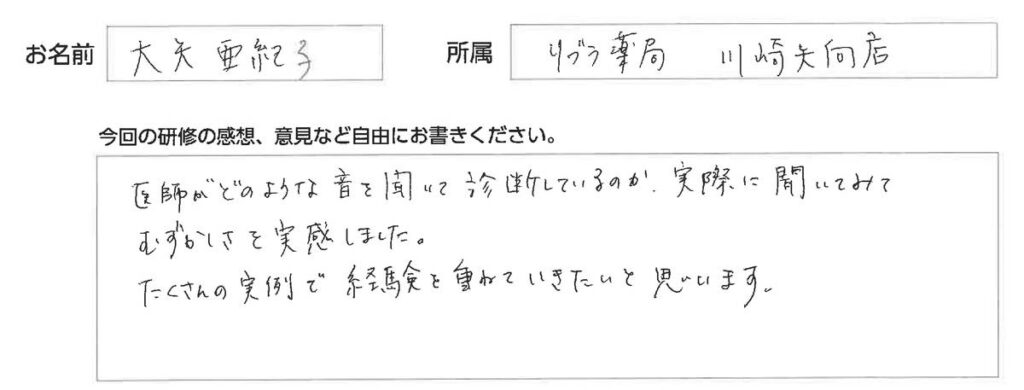 お名前 大矢亜紀子 所属 リブラ薬局 川崎矢向店
今回の研修の感想、意見など自由にお書きください。
医師がどのような音を聞いて診断しているのか、実際に聞いてみて
むずかしさを実感しました。
たくさんの実例で経験を重ねていきたいと思います。